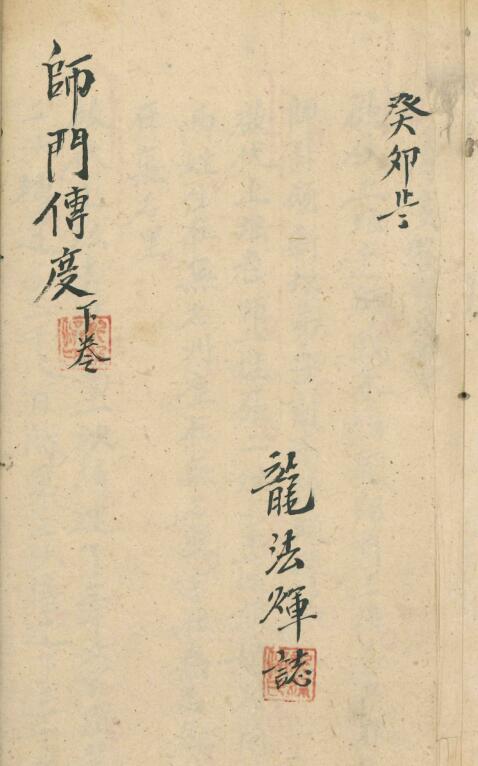 癸卯岁
龍法輝誌
師門傳度下卷